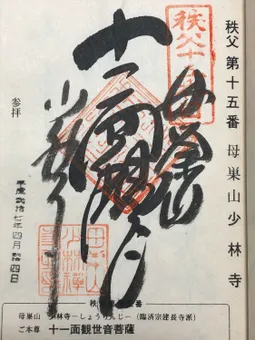 秩父 第十五番 母巣山少林寺
秩父十五番
母巣山
十一面観世音
少林寺
参拝
平成弐拾七年四月拾四日
秩父
番
母巣山 少林寺―しょうりんじ―(臨済宗建長寺派)
ご本尊 十一面観世音菩薩